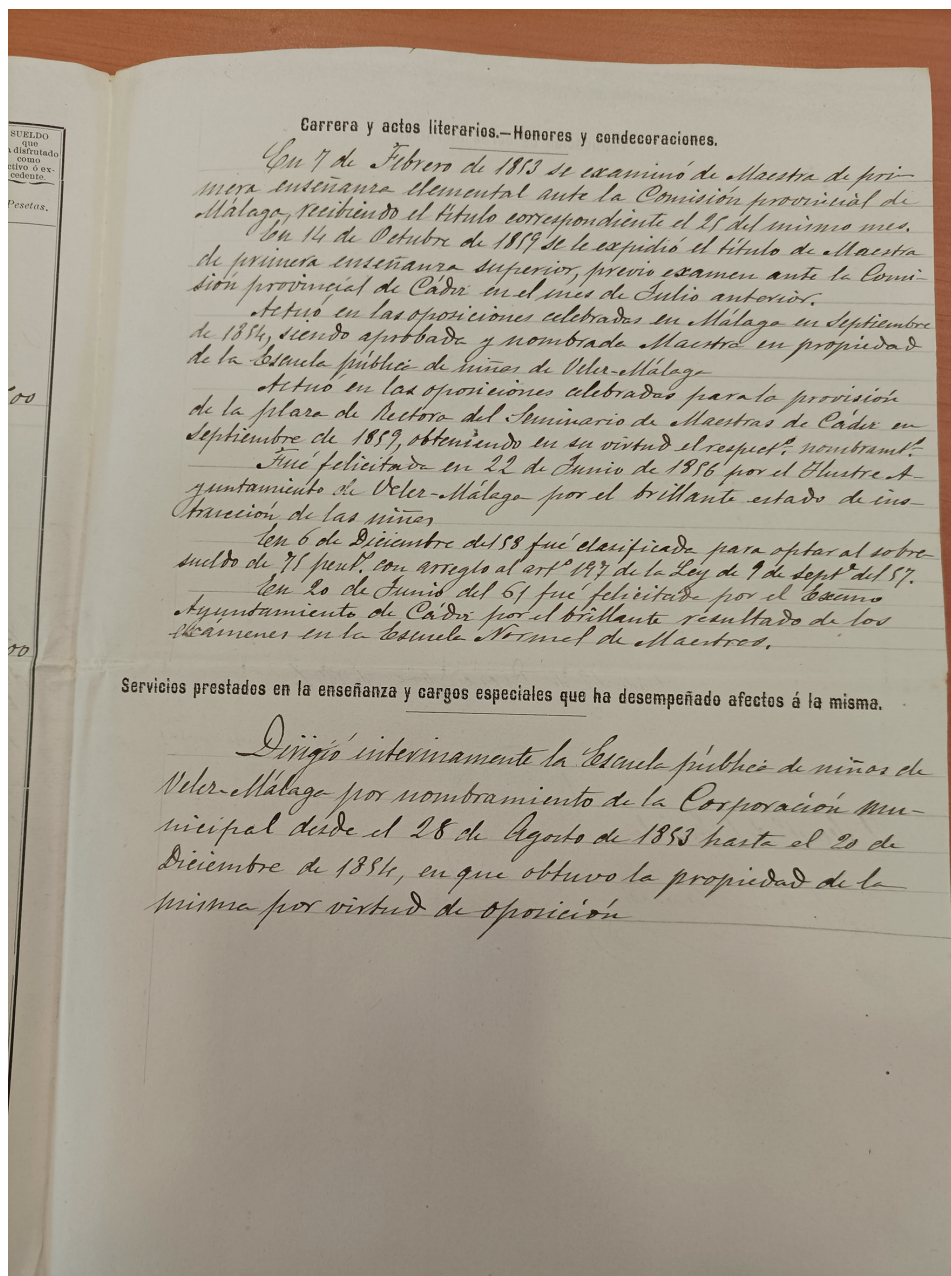 SUELDO
que
a disfrutado
como
ctivo ó ex-
cedente.
Pesetas.
00
00
Carrera y actos literarios.—Honores y condecoraciones.
En 7 de Febrero de 1853 se examinó de Maestra de pri-
mera enseñanza elemental ante la Comisión provincial de
Málaga, recibiendo el título correspondiente el 25 del mismo mes.
En 14 de Octubre de 1859 se le expidió el título de Maestra
de primera enseñanza superior, previo examen ante la Comi-
sión provincial de Cádiz en el mes de Julio anterior.
Actuó en las oposiciones celebradas en Málaga en Septiembre
de 1854, siendo aprobada y nombrada Maestra en propiedad
de la Escuela pública de niñas de Velez-Málaga
Actuó en las oposiciones celebradas para la provisión
de la plaza de Rectora del Seminario de Maestras de Cádiz en
Septiembre de 1859, obteniendo en su virtud el respectº. nombramtº.
Fué felicitada en 22 de Junio de 1856 por el Ilustre A-
yuntamiento de Velez-Málaga por el brillante estado de ins-
trucción de las niñas
En 6 de Diciembre del 58 fué clasificada para optar al sobre-
sueldo de 75 pent. con arreglo al artº 197 de la Ley de 9 de septe del 57.
En 20 de Junio del 61 fué felicitada por el Excmo
Ayuntamiento de Cádiz por el brillante resultado de los
exámenes en la Escuela Normal de Maestras.
Servicios prestados en la enseñanza y cargos especiales que ha desempeñado afectos á la misma.
Dirigió interinamente la Escuela pública de niñas de
Velez-Málaga por nombramiento de la Corporación mu-
nicipal desde el 28 de Agosto de 1853 hasta el 20 de
Diciembre de 1854, en que obtuvo la propiedad de la
misma por virtud de oposición